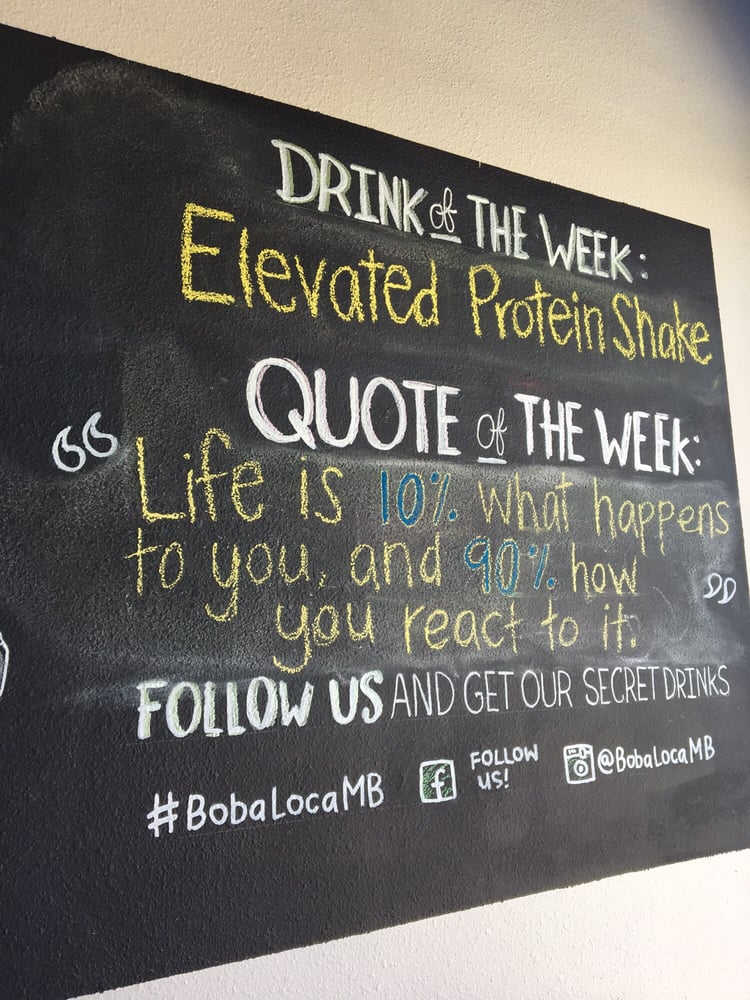 DRINK of THE WEEK:
Elevated Protein Shake
QUOTE of THE WEEK:
“Life is 10% what happens
to you, and 90% how
you react to it.”
FOLLOW US AND GET OUR SECRET DRINKS
#BobaLocaMB f FOLLOW US! @BobaLocaMB